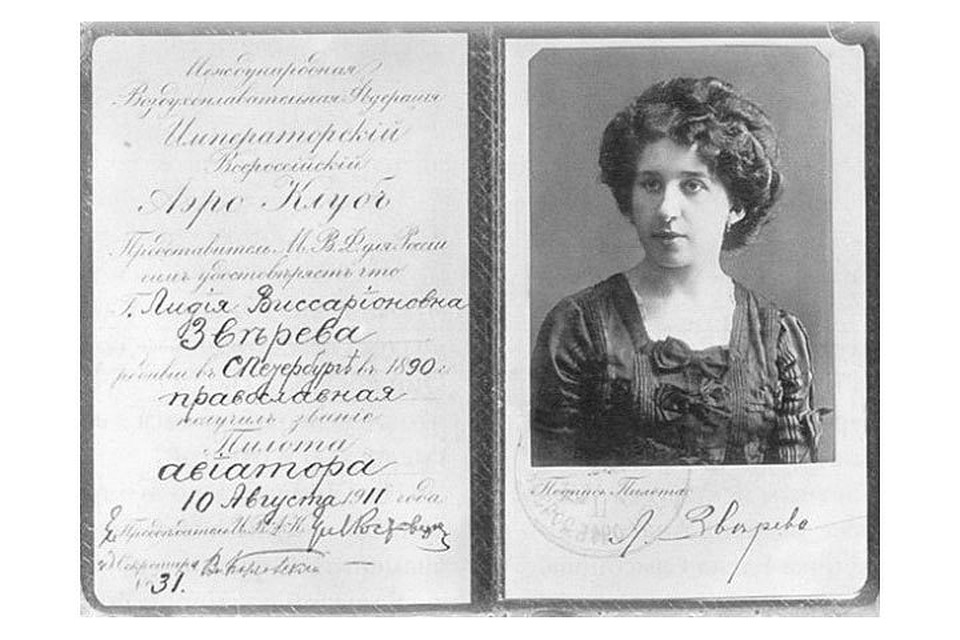 Международная
Воздухоплавательная Федерація
Императорскій
Всероссійскій
Аэро Клубъ
Представитель М. В. Ф. для Россіи
симъ удостовѣряетъ что
Г. Лидія Виссаріоновна
Звѣрева
въ С Петербургѣ въ 1890 г.
православная
получилъ званіе
Пилота
авіатора
10 Августа 1911 года
Председатель И. В. А. К.
Секретарь
31.
Подпись Пилота
Л. Звѣрева